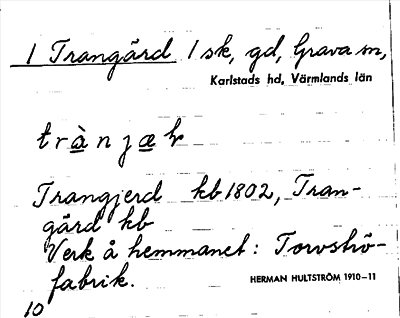 1 Trangärd 1 sk, gd, Grava sn,
Karlstads hd, Värmlands län
trànjæ
Trangjerd kb 1802, Tran-
gärd kb
Verk å hemmanet: Torvströ-
fabrik.
HERMAN HULTSTRÖM 1910–11
10